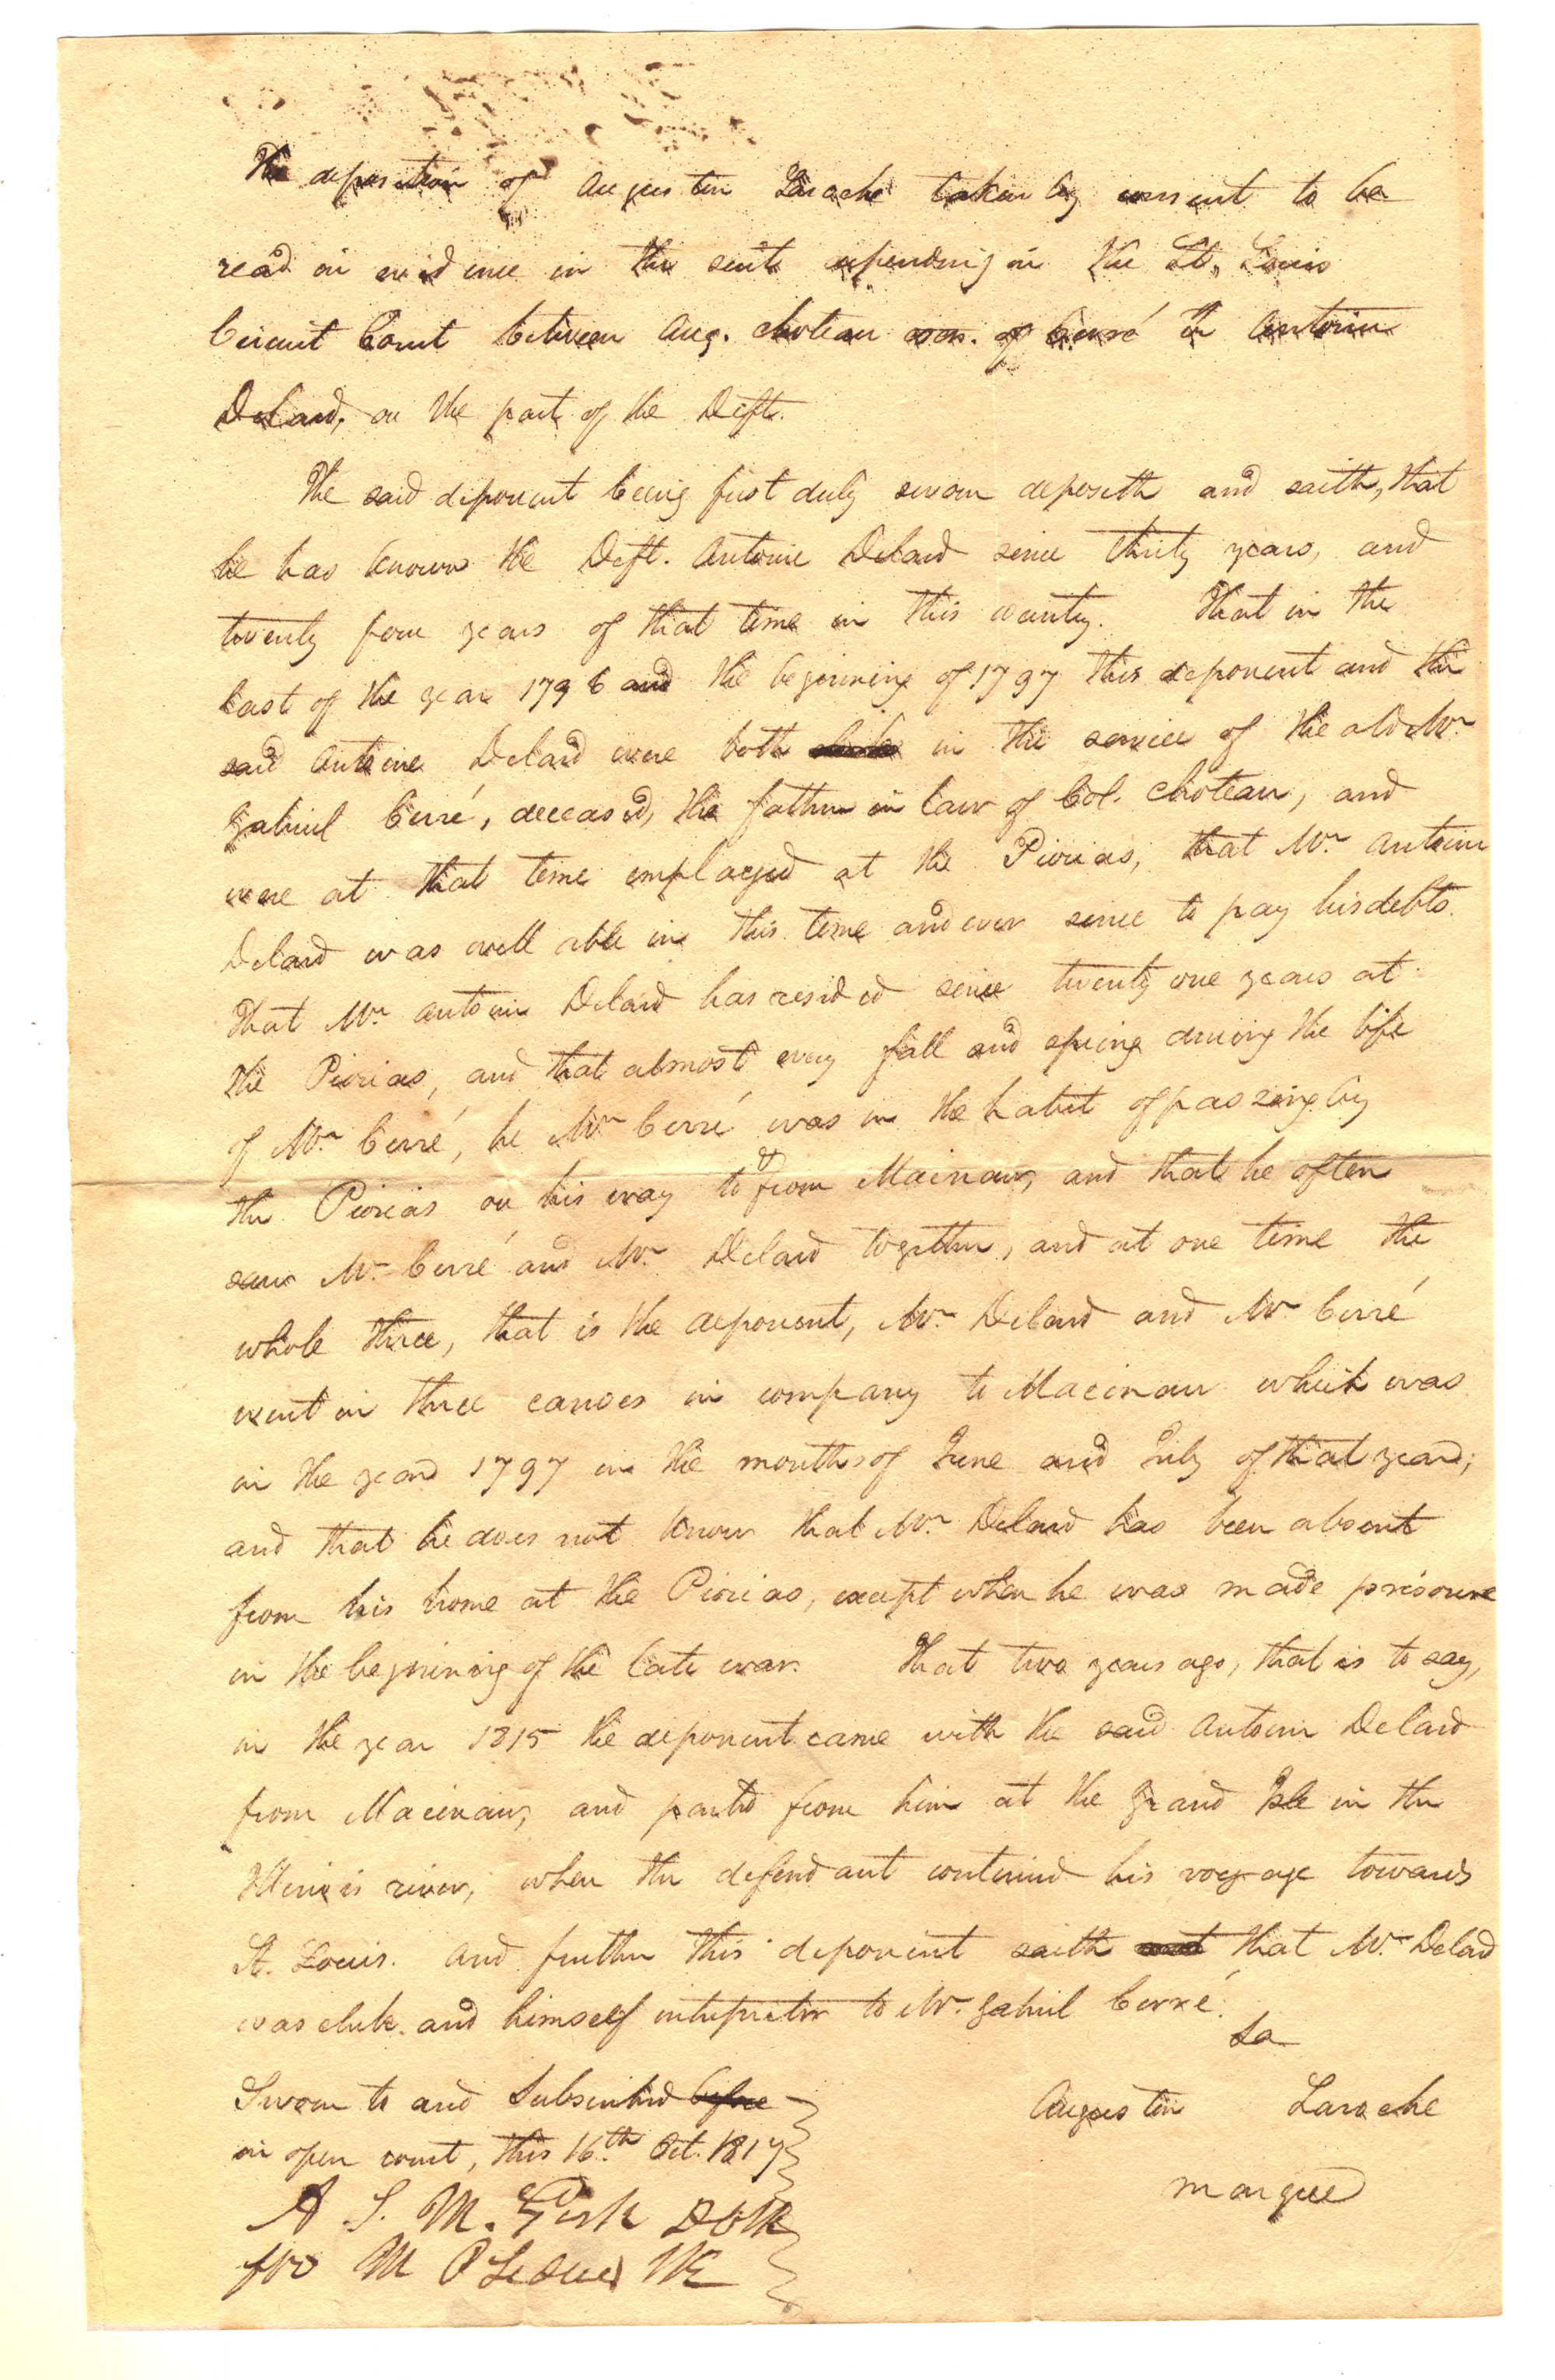 The deposition of Augustin Laroche taken by consent to be
read in evidence in the suit depending in the St. Louis
Circuit Court between Aug. Choteau of Cerré & Antoine
Delard, on the part of the Deft.
The said deponent being first duly sworn deposeth and saith, that
he has known the Deft. Antoine Delard since thirty years, and
twenty four years of that time in this country. That in the
last of the year 1796 and the beginning of 1797 this deponent and the
said Antoine Delard were both in the service of the old Mr.
Gabriel Cerré, deceased, the father in law of Col. Choteau, and
were at that time employed at the Piorias, that Mr. Antoine
Delard was well able in this time and ever since to pay his debts.
That Mr. Antoine Delard has resided since twenty one years at
the Piorias, and that almost every fall and spring during the life
of Mr. Cerré, he Mr. Cerré was in the habit of passing by
the Piorias on his way to & from Macinaw, and that he often
saw Mr. Cerré and Mr. Delard together, and at one time the
whole three, that is the deponent, Mr. Delard and Mr. Cerré
went in three canoes in company to Macinaw which was
in the year 1797 in the months of June and July of that year;
and that he does not know that Mr. Delard has been absent
from his home at the Piorias, except when he was made prisoner
in the beginning of the late war. That two years ago, that is to say,
in the year 1815 the deponent came with the said Antoine Delard
from Macinaw, and parted from him at the Grand Isle in the
Illinois river, when the defendant continued his voyage towards
St. Louis. And further this deponent saith that Mr. Delard
was clerk and himself interpreter to Mr. Gabriel Cerré.
Sworn to and subscribed before
in open court, this 16th. Oct. 1817
A S. M. Girk DClk
for M P Leduc Clk
sa
Augustin Laroche
marque